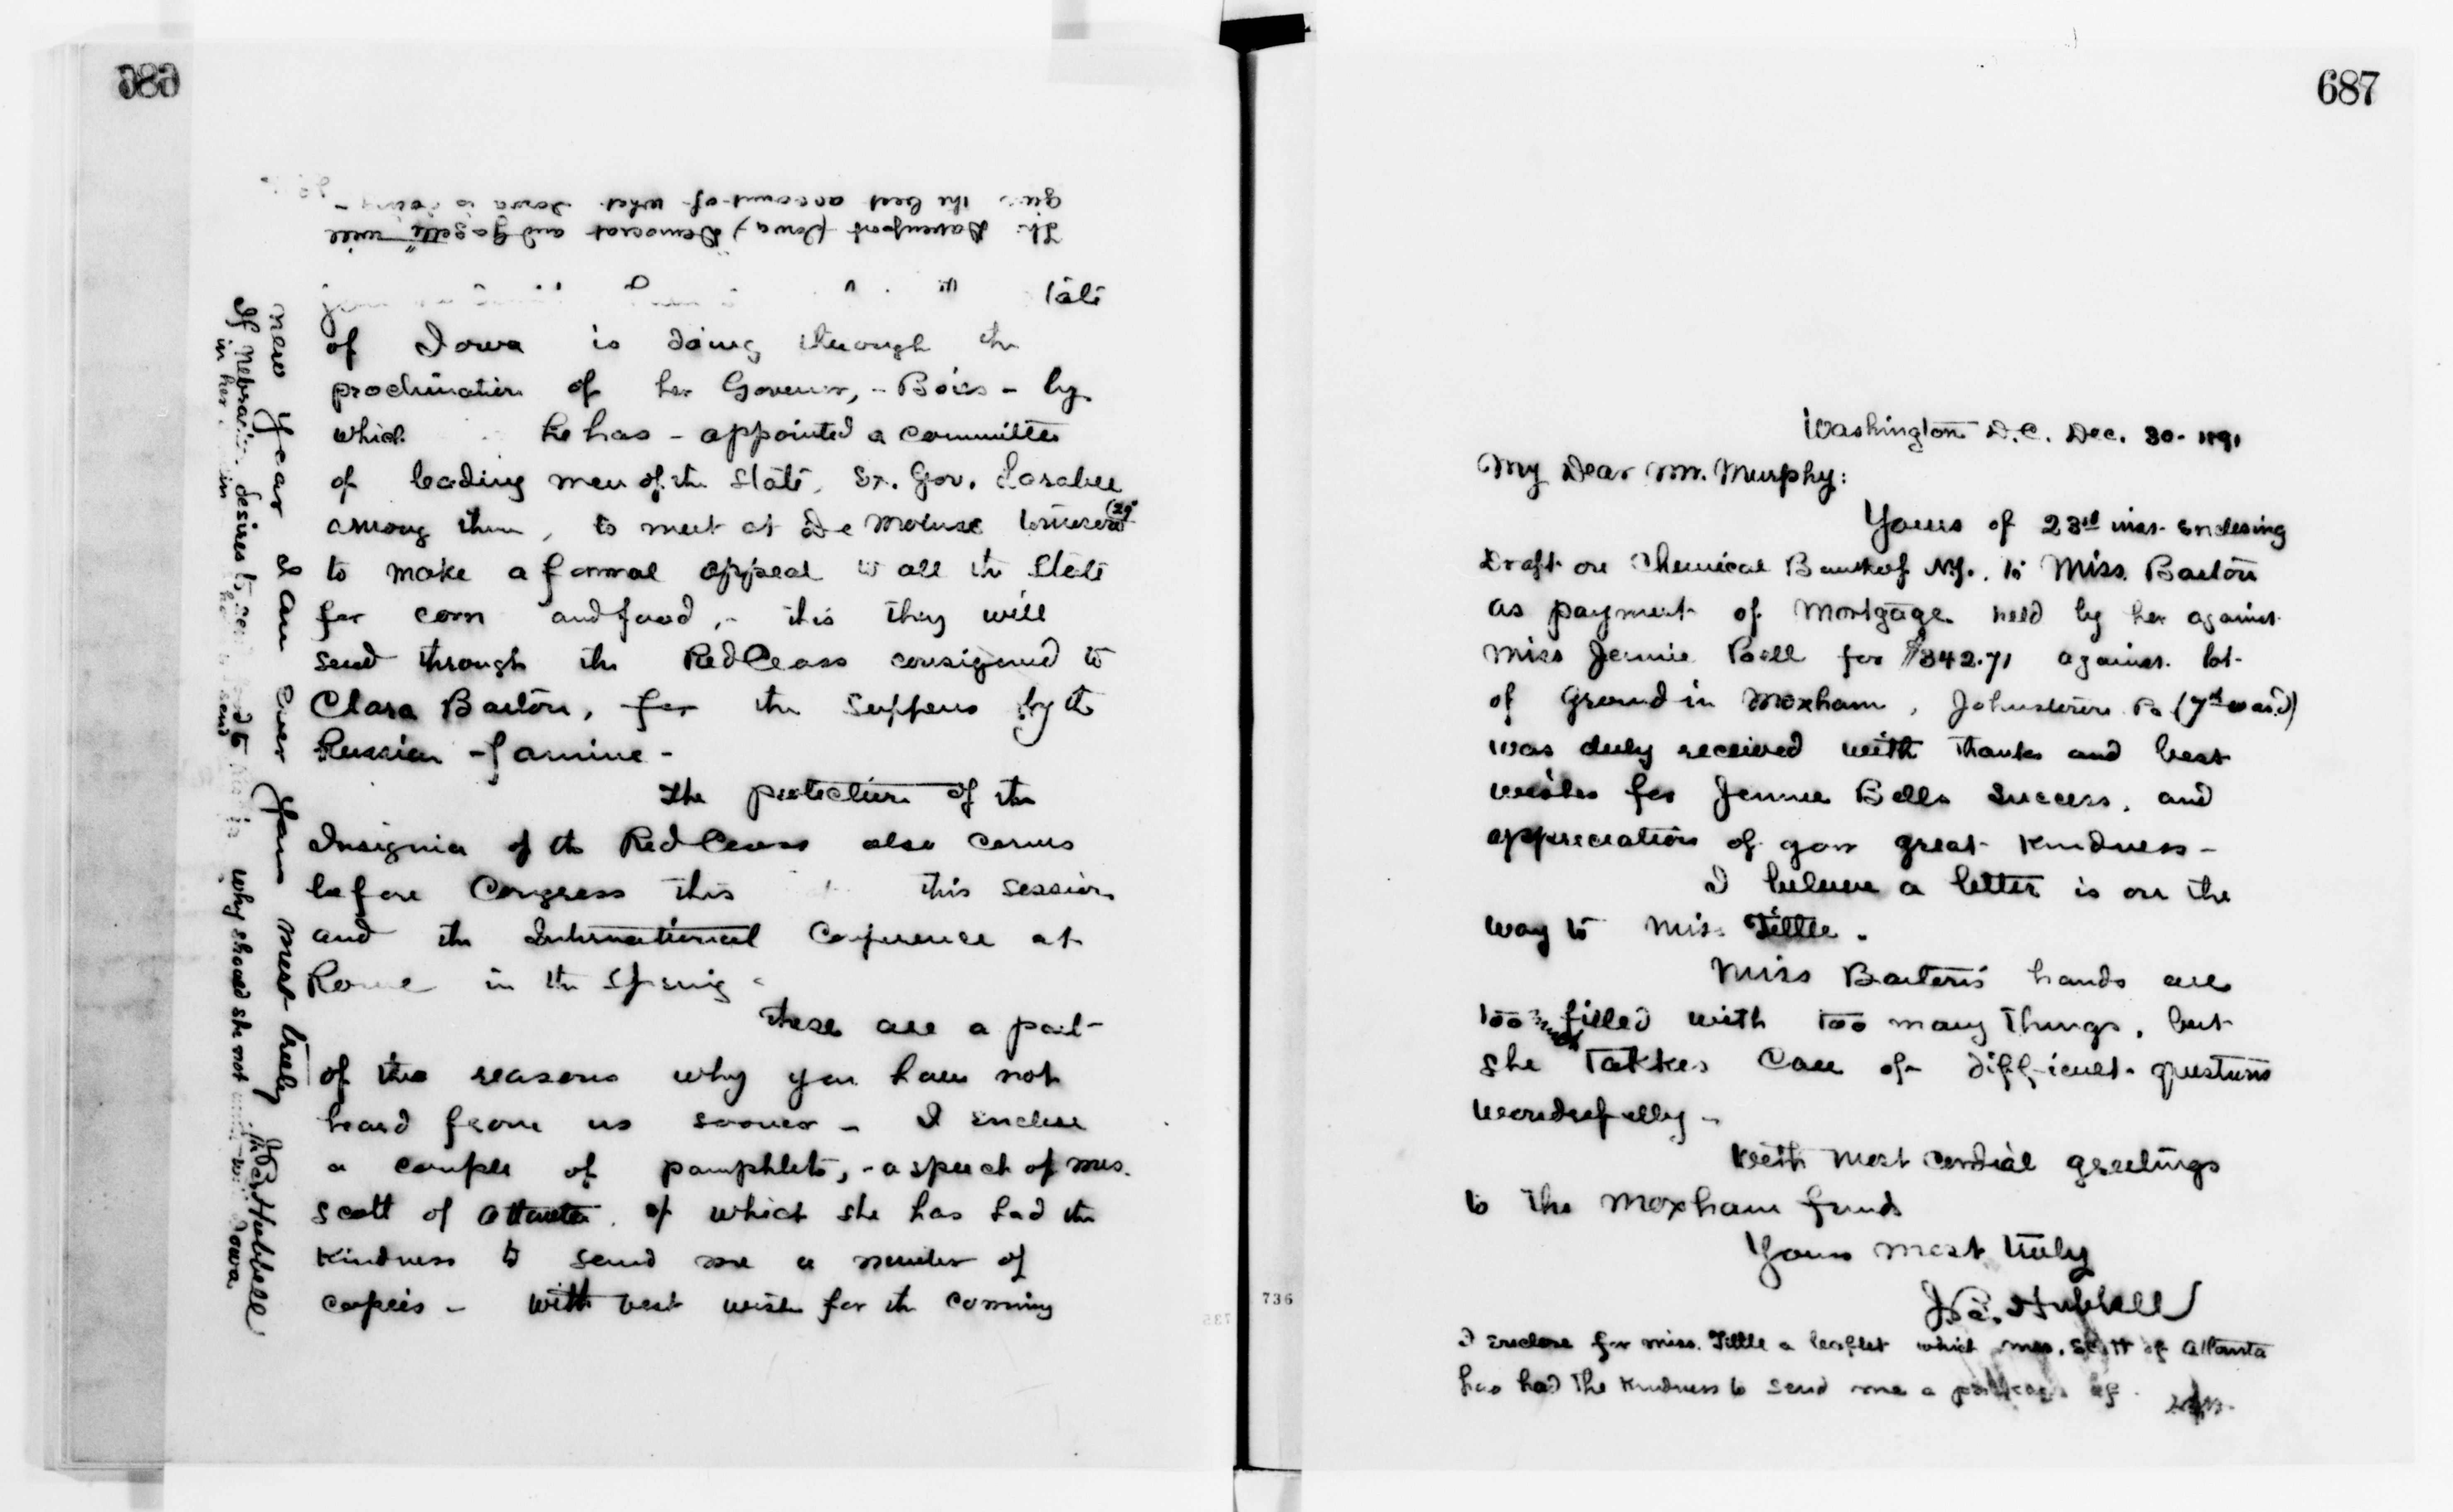 686
The Davenport (Iowa) "Democrat and Gazette" will
give the best account of what Iowa is doing -
State
of Iowa is doing through the
proclimation of her Govenor, - Boies - by
which he has - appointed a committee
of leading men of the State, Ex. Gov. Larabee
among them, to meet at De Moines tomorrow (29"
to make a formal appeal to all the State
for corn and food, - this they will
send through the Red Cross consigned to
Clara Barton, for the sufferers by the
Russian famine -
The protection of the
Insignia of the Red Cross also comes
before Congress this this session
and the International Conference at
Rome in the Spring -
These are a part
of the reasons why you have not
heard from us sooner - I enclose
a couple of pamphlets, - a speech of Mrs.
Scott of Atlanta of which she has had the
kindness to send me a number of
copies - With best wish for the coming
New Year I am Ever Yours most truly
Hubbell
If Nebraska desires to
in her
why should she not
Iowa.
687
Washington D.C. Dec. 30. 1891
My Dear Mr. Murphy:
Yours of 23rd ins. Enclosing
Draft on Chemical Bank of N.Y. to Miss Barton
as payment of Mortgage held by her against
Miss Jennie Bell for $342.71 against lot
of Ground in Moxham, Johnstown Pa (7th ward)
was duly received with thanks and best
wishes for Jennie Bells success, and
appreciation of your great kindness -
I believe a letter is on the
way to Miss Tittle.
Miss Barton's hands are
too much filled with too many things, but
she takkes care of difficult questions
wonderfully -
With most cordial greetings
to the Moxham friends
Yours most truly
Hubbell
I Enclose for Miss. Tittle a leaflet which Mrs. Scott of Atlanta
has had the kindness to send me a package of.
736
735